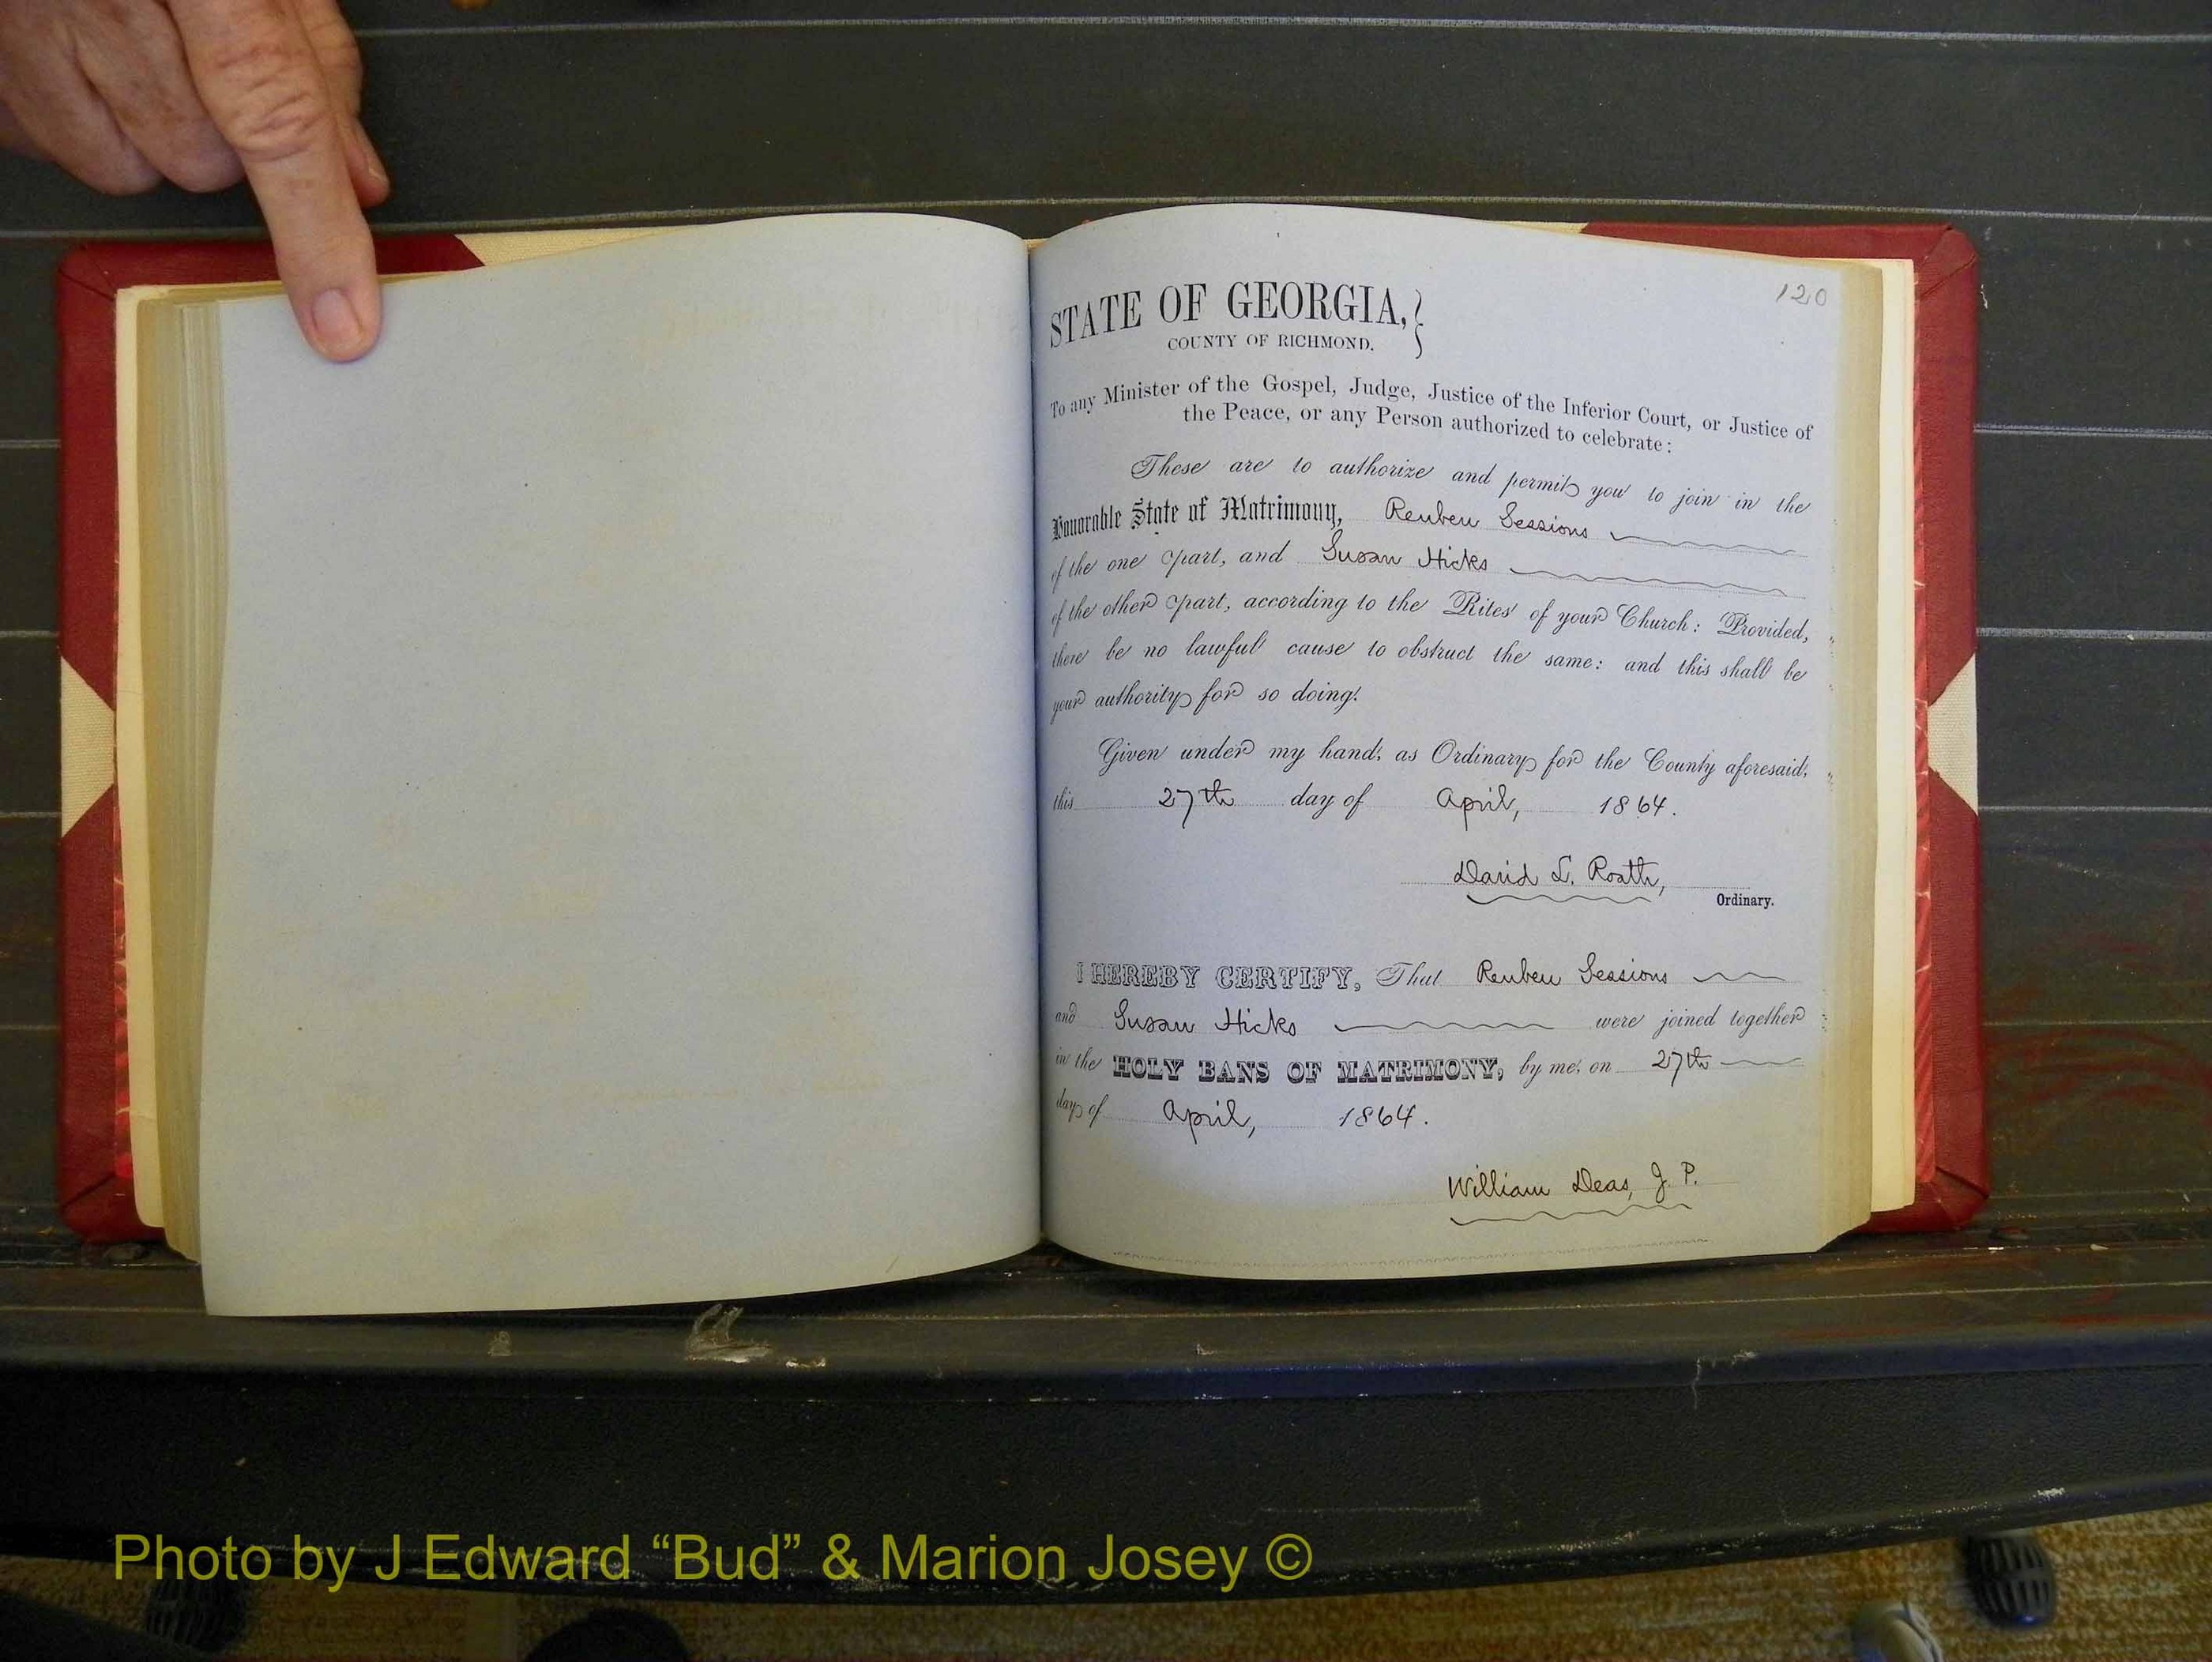 120
STATE OF GEORGIA,
COUNTY OF RICHMOND.
To any Minister of the Gospel, Judge, Justice of the Inferior Court, or Justice of
the Peace, or any Person authorized to celebrate:
These are to authorize and permit you to join in the
Honorable State of Matrimony, Reuben Sessions
of the one part, and Susan Hicks
of the other part, according to the Rites of your Church: Provided,
there be no lawful cause to obstruct the same: and this shall be
your authority for so doing.
Given under my hand, as Ordinary for the County aforesaid,
this 27th day of April, 1864.
David L. Roath,
Ordinary.
I HEREBY CERTIFY, That Reuben Sessions
and Susan Hicks were joined together
in the HOLY BANS OF MATRIMONY, by me, on 27th
day of April, 1864.
William Deas, J. P.
Photo by J Edward “Bud” & Marion Josey ©